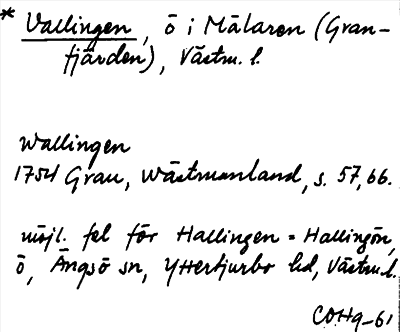 * Vallingen, ö i Mälaren (Gran-
fjärden), Västm. l.
Wallingen
1754 Grau, Wästmanland, s. 57, 66.
möjl. fel för Hallingen = Hallingön,
ö, Ängsö sn, Yttertjurbo hd, Västm. l.